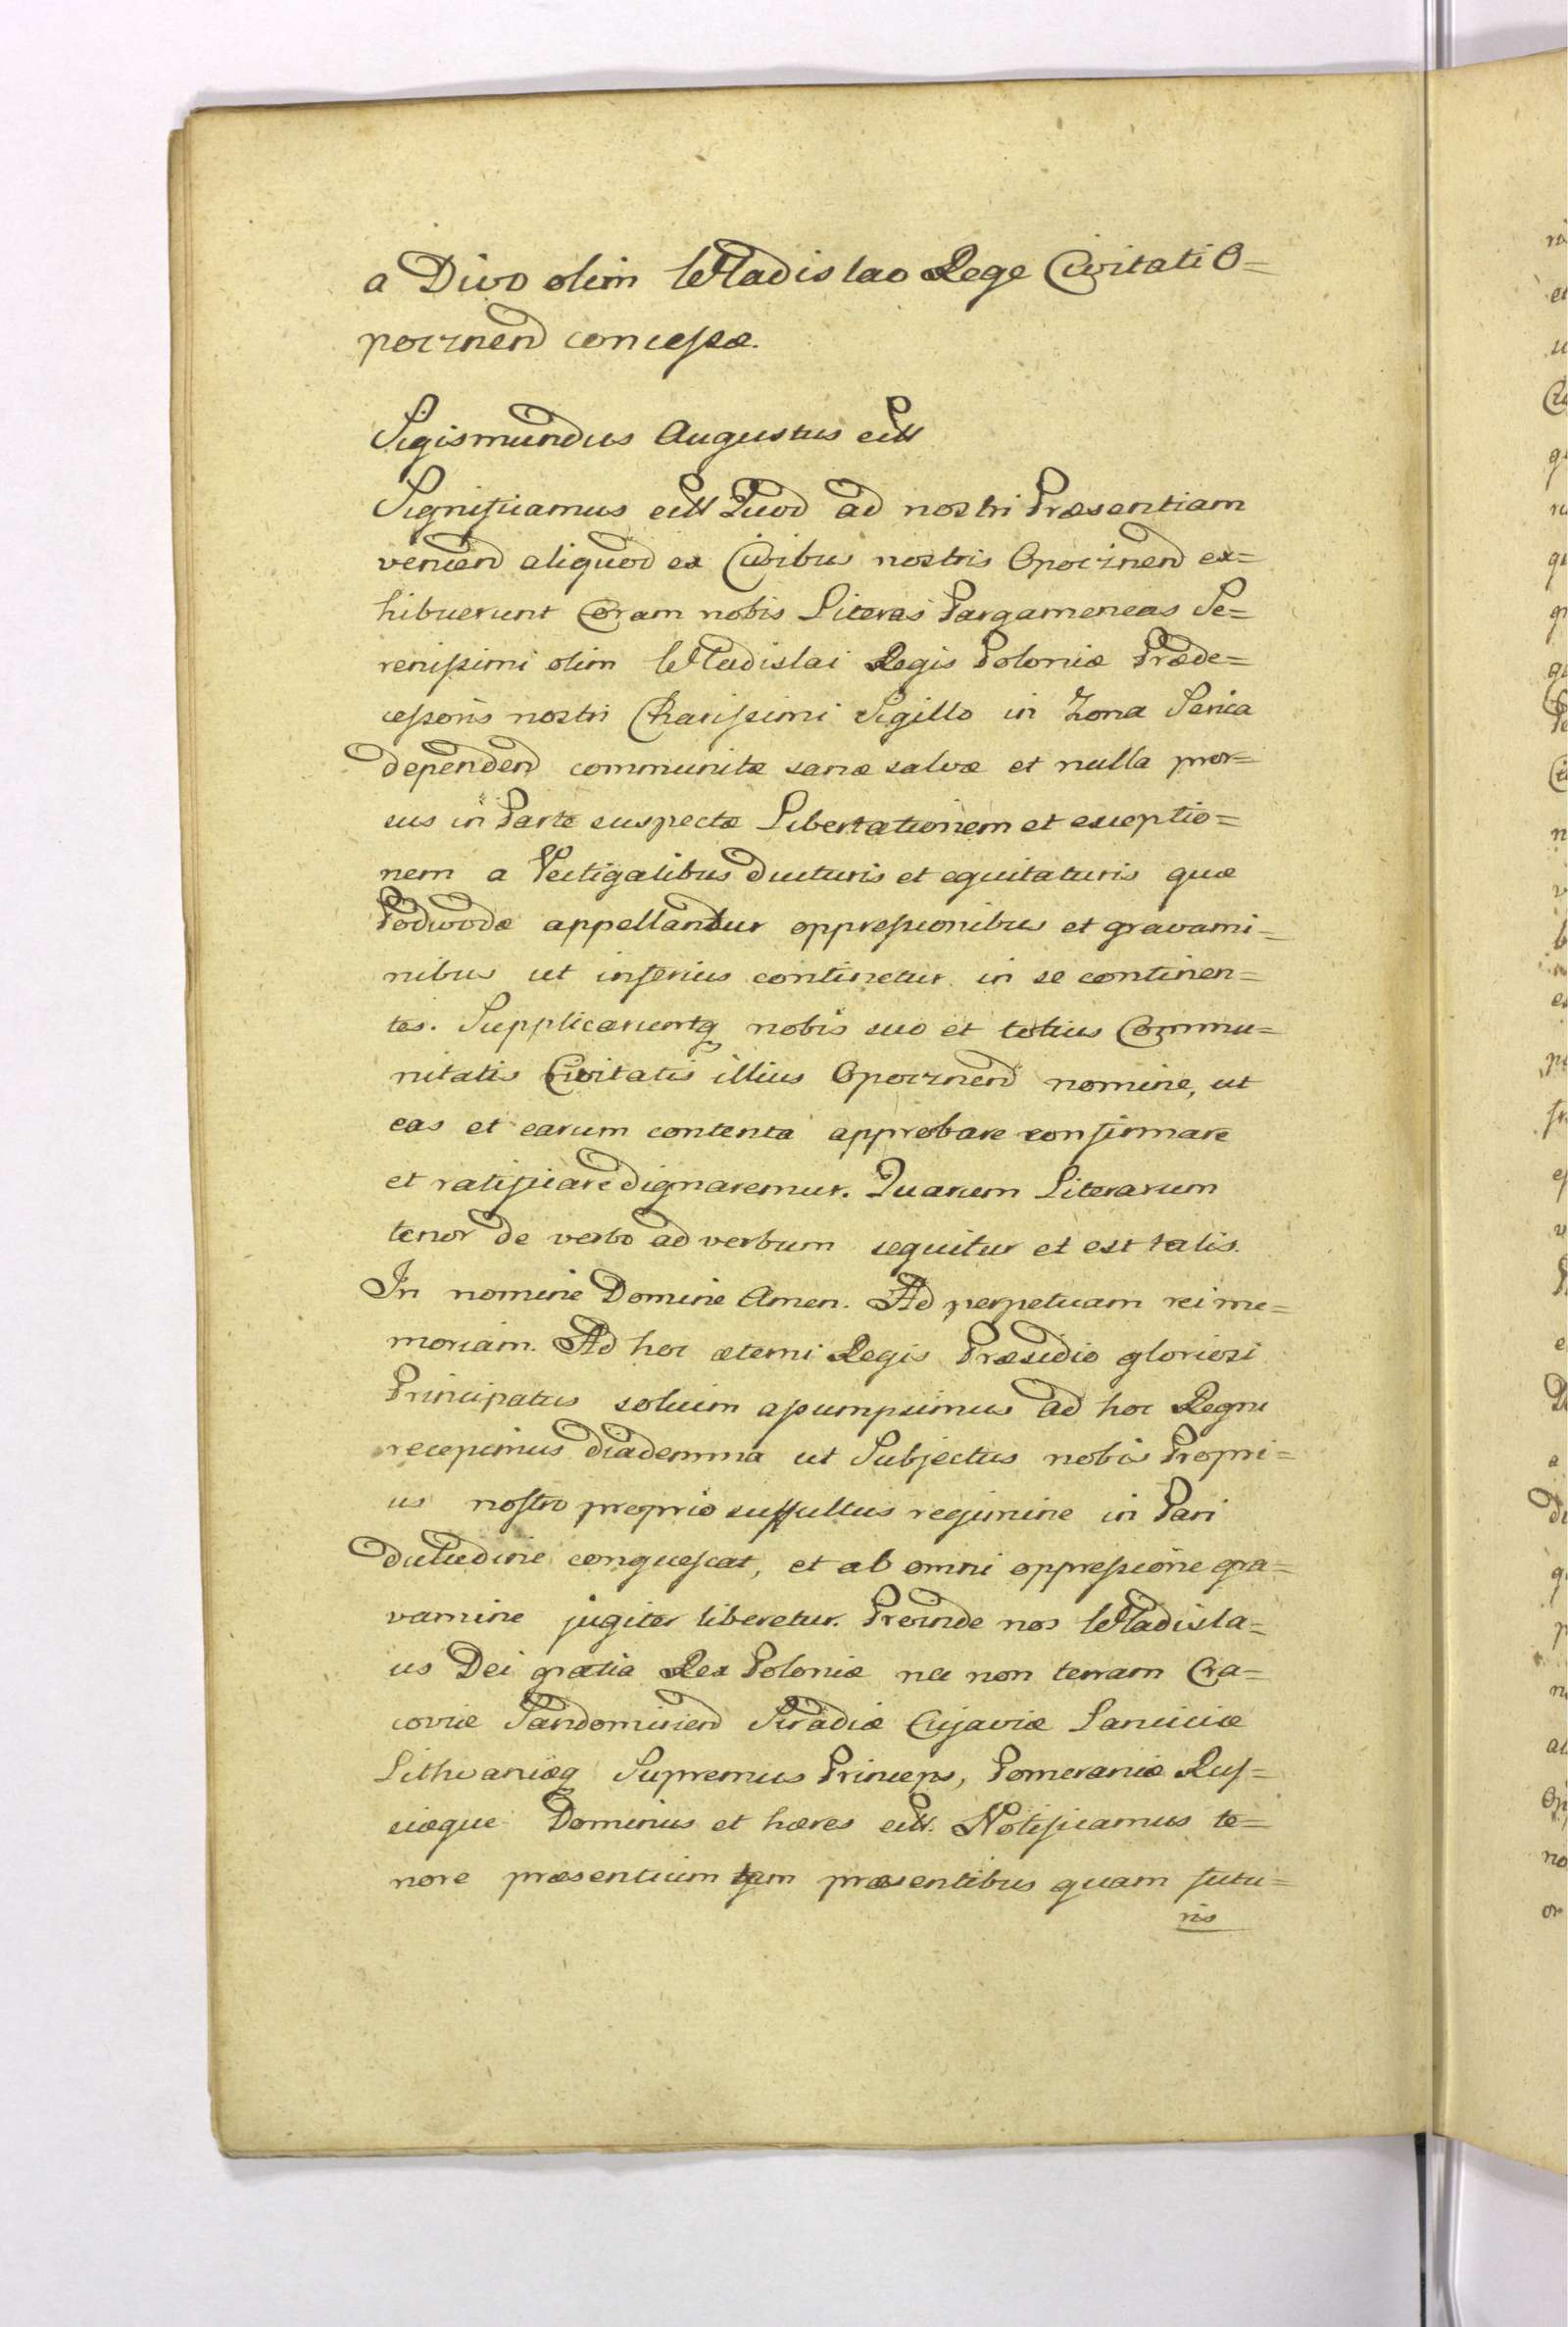 a Divo olim Wladislao Rege Civitati O=
pocznend concessæ.
Sigismundus Augustus ett
Significamus ett Quod ad nostri Præsentiam
veniend aliquod ex Civibus nostris Opocznend ex=
hibuerunt Coram nobis Literas Pargameneas Se=
renissimi olim Wladislai Regis Poloniæ Præde=
cessoris nostri Charissimi Sigillo in Zona Serica
dependend communitæ sanæ salvæ et nulla pror=
sus in Parte suspectæ Libertationem et exceptio=
nem a Vectigalibus ducturis et equitaturis quæ
Podwodæ appellantur oppressionibus et gravami=
nibus ut inferius continetur in se continen=
tes. Supplicaruntq nobis suo et totius Commu=
nitatis Civitatis illius Opocznend nomine, ut
eas et earum contenta approbare confirmare
et ratificare dignaremur. Quarum Literarum
tenor de verbo ad verbum sequitur et est talis.
In nomine Domine Amen. Ad perpetuam rei me=
moriam. Ad hoc æterni Regis Præsidio gloriosi
Principatus solium assumpsimus ad hoc Regni
recepimus diademma ut Subjectus nobis Propri=
us nostro proprio suffultus regimine in Pari
dulcedine conquescat, et ab omni oppressione gra=
vamine jugiter liberetur. Proinde nos Wladisla=
us Dei gratia Rex Poloniæ nec non terram Cra=
coviæ Sandomiriend Siradiæ Cujaviæ Lanciciæ
Lithvaniæq Supremus Princeps, Pomeraniæ Rus=
siæque Dominus et hæres ett. Notificamus te=
nore præsentium tam præsentibus quam futu=
ris